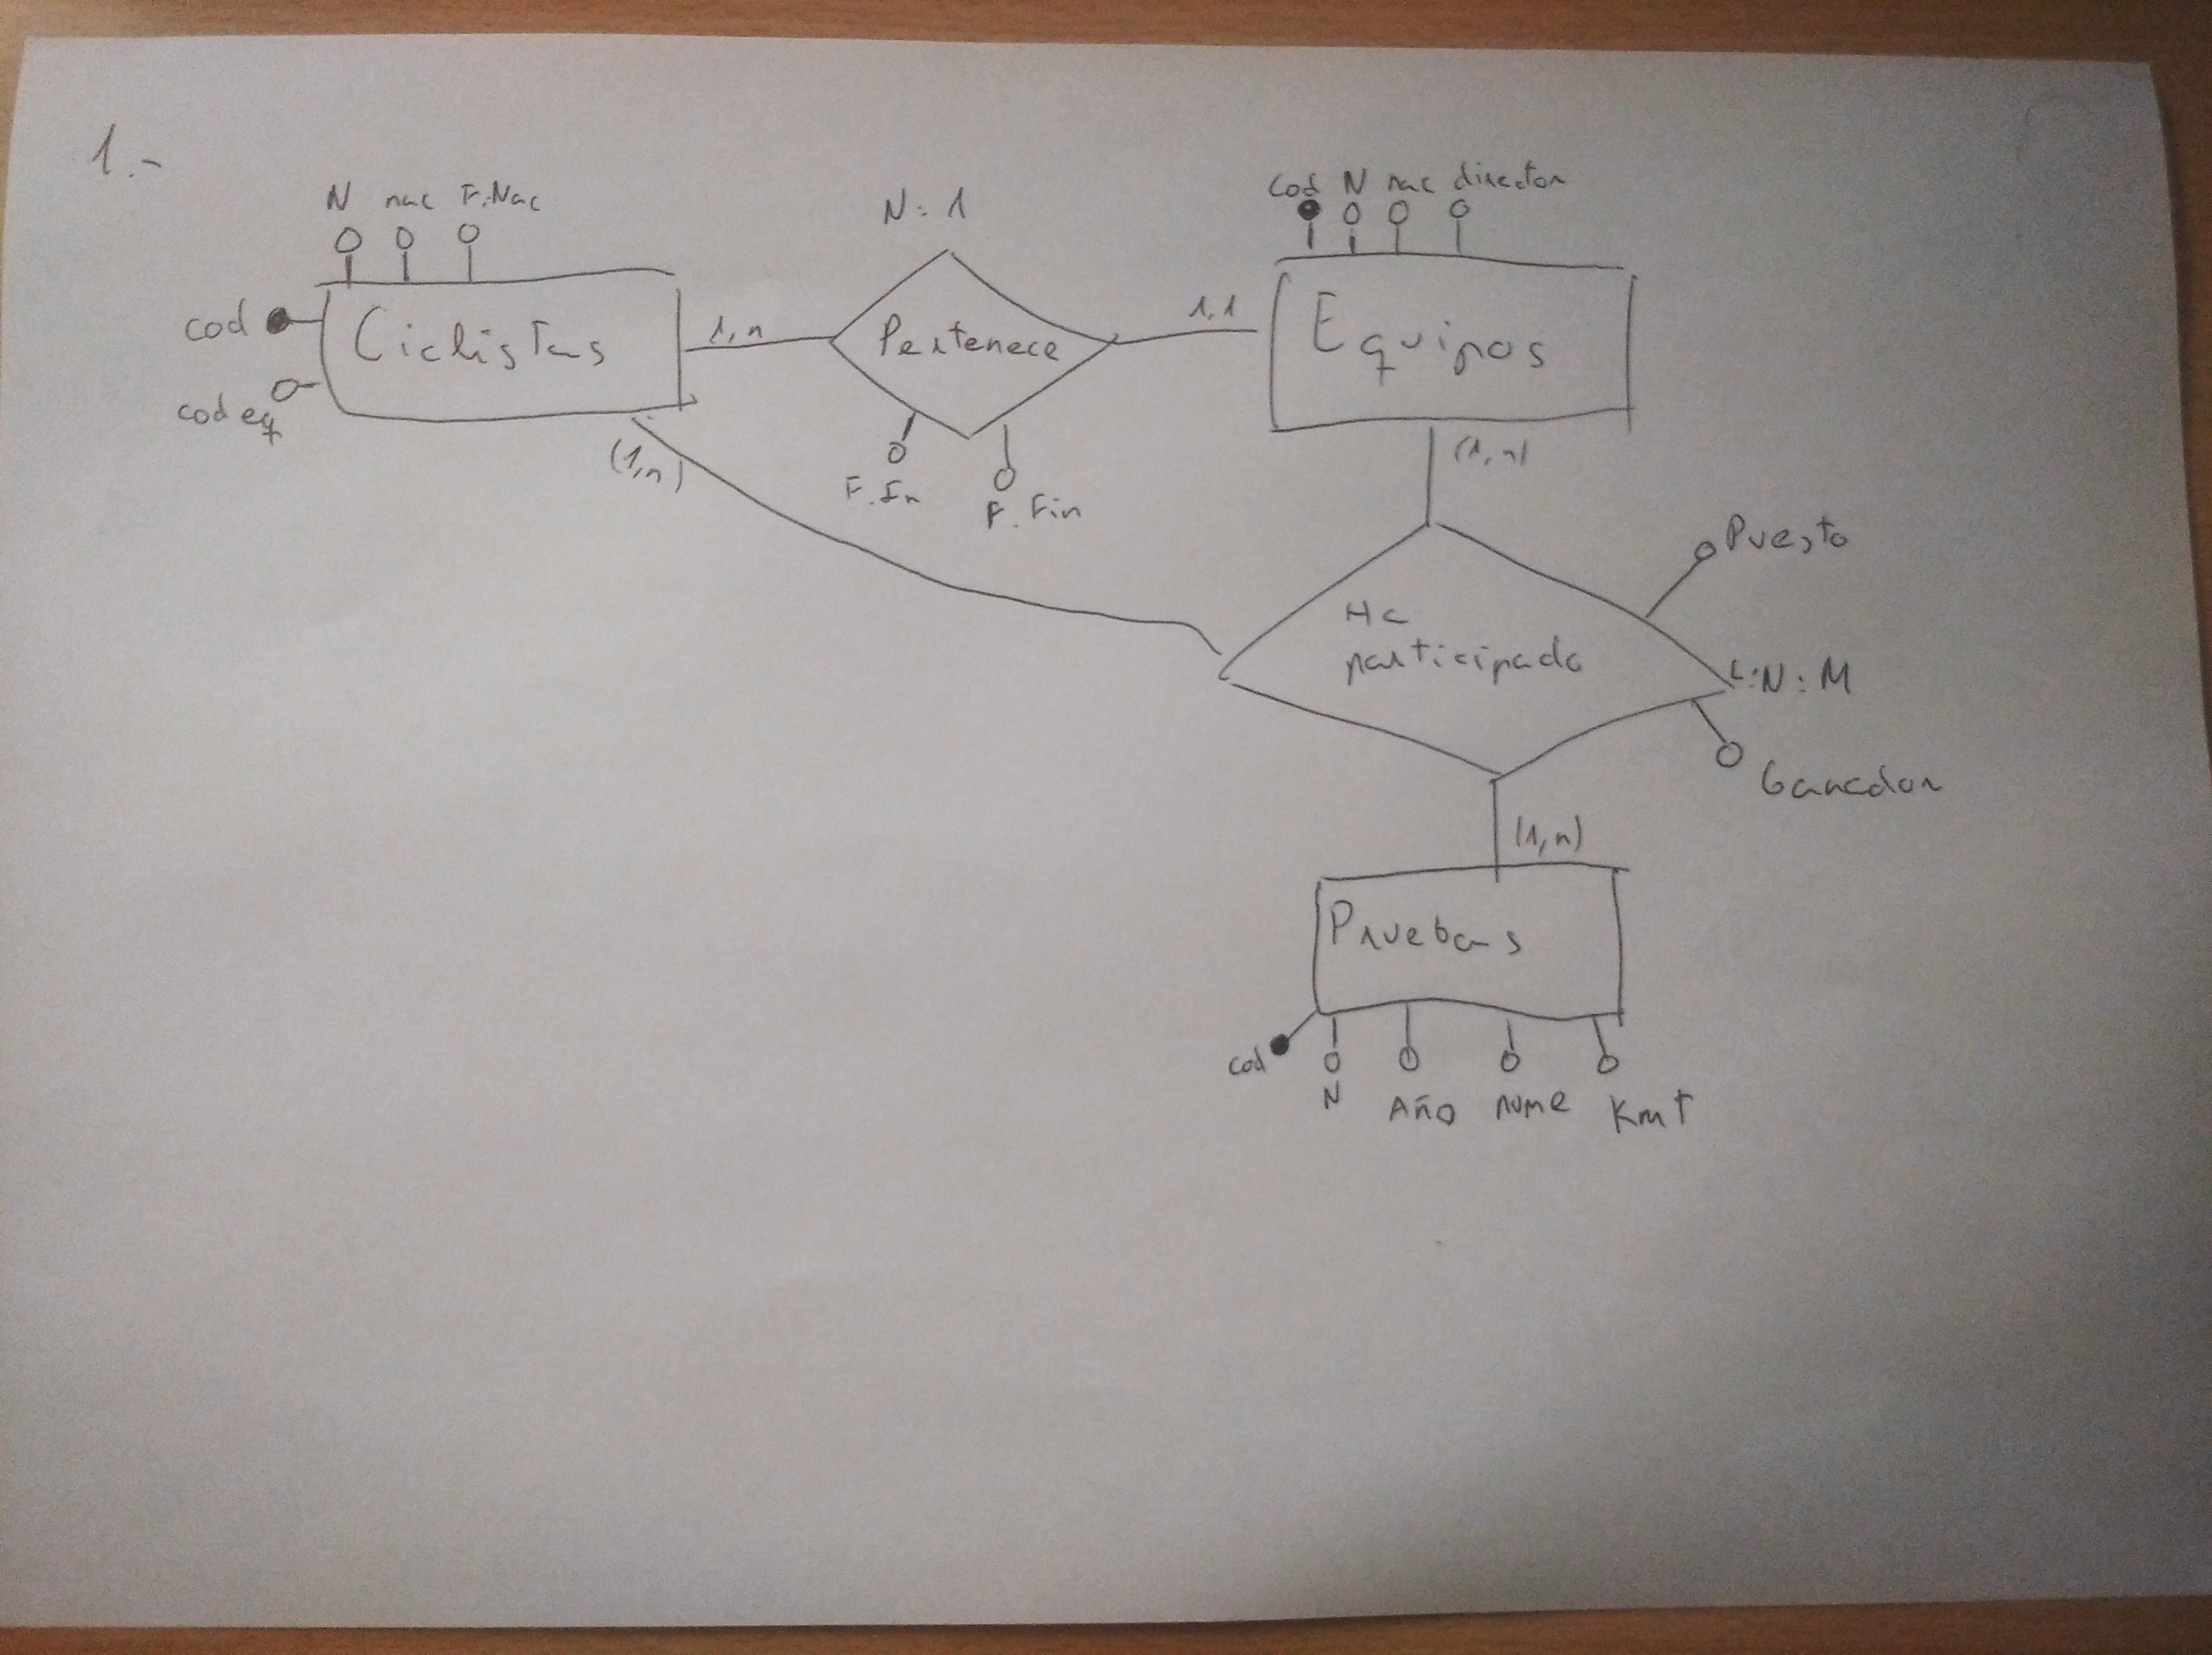 1.-
N nac F.Nac
cod
cod eq
Ciclistas
(1,n)
1,n
N:1
Pertenece
F.In
F.Fin
1,1
cod N nac director
Equipos
(1,n)
Puesto
Ha
participado
L:N:M
Ganador
(1,n)
Pruebas
cod
N
Año
nume
Kmt